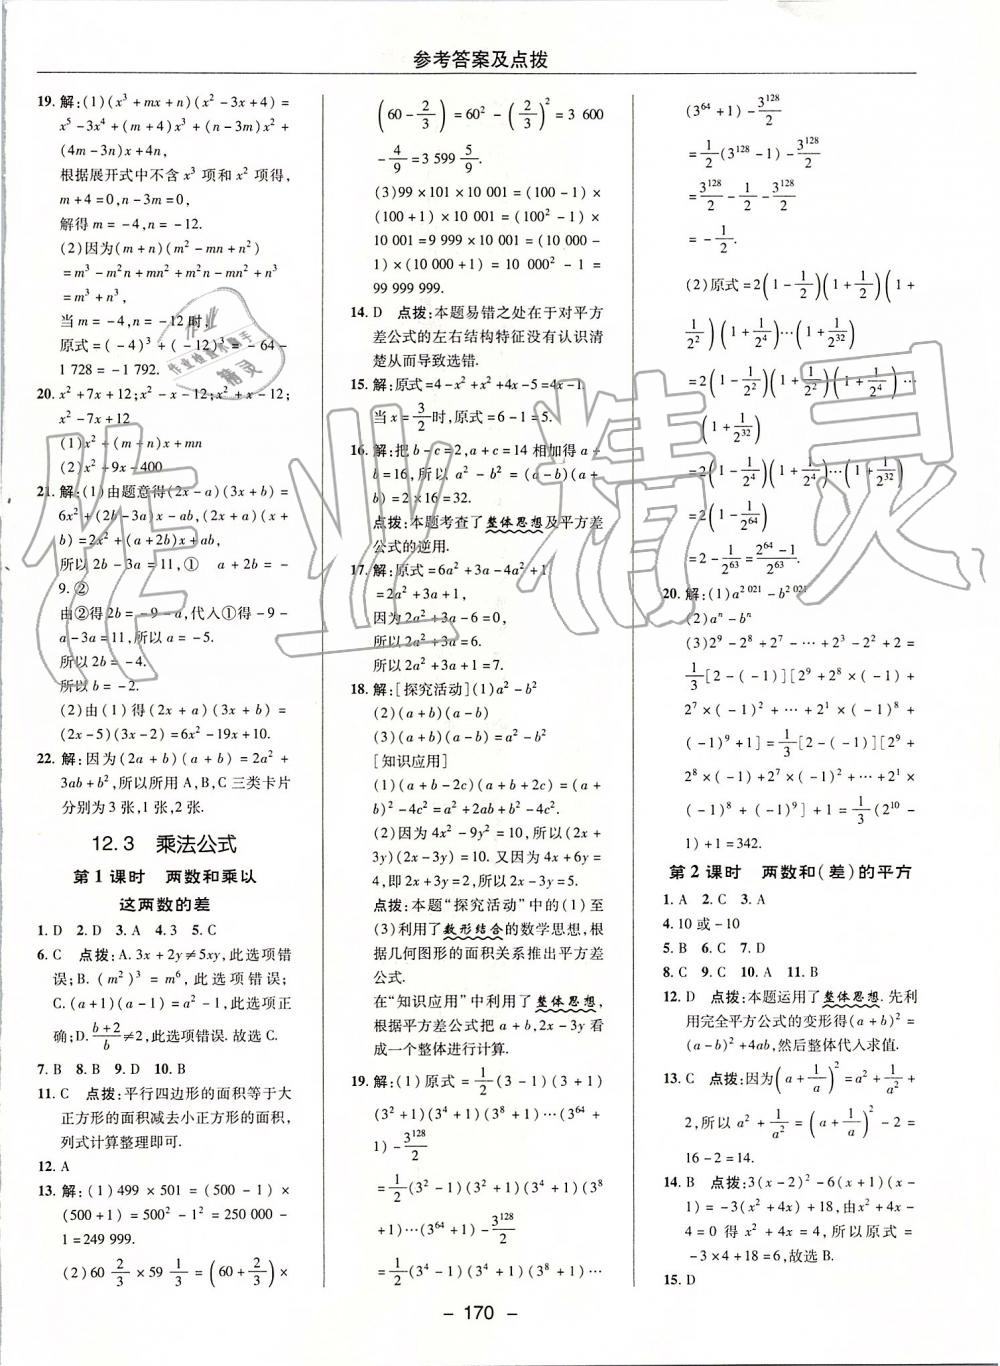 参考答案及点拨
19. 解:(1)(x³+mx+n)(x²-3x+4)=
x⁵-3x⁴+(m+4)x³+(n-3m)x²+
(4m-3n)x+4n,
根据展开式中不含 x³ 项和 x² 项得,
m+4=0,n-3m=0,
解得 m=-4,n=-12.
(2)因为(m+n)(m²-mn+n²)
=m³-m²n+mn²+m²n-mn²+n³
=m³+n³,
当 m=-4,n=-12时,
原式=(-4)³+(-12)³=-64-
1 728=-1 792.
20. x²+7x+12;x²-x-12;x²+x-12;
x²-7x+12
(1)x²+(m+n)x+mn
(2)x²+9x-400
21. 解:(1)由题意得(2x-a)(3x+b)=
6x²+(2b-3a)x-ab,(2x+a)(x+
b)=2x²+(a+2b)x+ab,
所以 2b-3a=11,① a+2b=-
9. ②
由②得 2b=-9-a,代入①得-9-
a-3a=11,所以 a=-5.
所以 2b=-4.
所以 b=-2.
(2)由(1)得(2x+a)(3x+b)=
(2x-5)(3x-2)=6x²-19x+10.
22. 解:因为(2a+b)(a+b)=2a²+
3ab+b²,所以所用 A,B,C 三类卡片
分别为 3 张,1 张,2 张.
12.3 乘法公式
第 1 课时 两数和乘以
这两数的差
1. D 2. D 3. A 4. 3 5. C
6. C 点拨:A. 3x+2y≠5xy,此选项错
误;B. (m²)³=m⁶,此选项错误;
C. (a+1)(a-1)=a²-1,此选项正
确;D. (b+2)/b≠2,此选项错误. 故选 C.
7. B 8. B 9. D 10. B
11. C 点拨:平行四边形的面积等于大
正方形的面积减去小正方形的面积,
列式计算整理即可.
12. A
13. 解:(1)499×501=(500-1)×
(500+1)=500²-1=250 000-
1=249 999.
(2)60 2/3×59 1/3=(60+2/3)×
(60-2/3)=60²-(2/3)²=3 600
-4/9=3 599 5/9.
(3)99×101×10 001=(100-1)×
(100+1)×10 001=(100²-1)×
10 001=9 999×10 001=(10 000-
1)×(10 000+1)=10 000²-1=
99 999 999.
14. D 点拨:本题易错之处在于对平方
差公式的左右结构特征没有认识清
楚从而导致选错.
15. 解:原式=4-x²+x²+4x-5=4x-1.
当 x=3/2时,原式=6-1=5.
16. 解:把 b-c=2,a+c=14 相加得 a+
b=16,所以 a²-b²=(a-b)(a+
b)=2×16=32.
点拨:本题考查了整体思想及平方差
公式的逆用.
17. 解:原式=6a²+3a-4a²+1
=2a²+3a+1,
因为 2a²+3a-6=0,
所以 2a²+3a=6.
所以 2a²+3a+1=7.
18. 解:[探究活动](1)a²-b²
(2)(a+b)(a-b)
(3)(a+b)(a-b)=a²-b²
[知识应用]
(1)(a+b-2c)(a+b+2c)=(a+
b)²-4c²=a²+2ab+b²-4c².
(2)因为 4x²-9y²=10,所以(2x+
3y)(2x-3y)=10. 又因为 4x+6y=
4,即 2(2x+3y)=4,所以 2x+3y=
2. 所以 2x-3y=10÷2=5.
点拨:本题“探究活动”中的(1)至
(3)利用了数形结合的数学思想,根
据几何图形的面积关系推出平方差
公式.
在“知识应用”中利用了整体思想,
根据平方差公式把 a+b,2x-3y 看
成一个整体进行计算.
19. 解:(1)原式=1/2(3-1)(3+1)
(3²+1)(3⁴+1)(3⁸+1)…(3⁶⁴+
1)-3¹²⁸/2
=1/2(3²-1)(3²+1)(3⁴+1)(3⁸
+1)…(3⁶⁴+1)-3¹²⁸/2
=1/2(3⁴-1)(3⁴+1)(3⁸+1)…
(3⁶⁴+1)-3¹²⁸/2
=1/2(3¹²⁸-1)-3¹²⁸/2
=3¹²⁸/2-1/2-3¹²⁸/2
=-1/2.
(2)原式=2(1-1/2)(1+1/2)(1+
1/2²)(1+1/2⁴)…(1+1/2³²)
=2(1-1/2²)(1+1/2²)(1+1/2⁴)…
(1+1/2³²)
=2(1-1/2⁴)(1+1/2⁴)…(1+1/2³²)
=2(1-1/2⁶⁴)
=2-1/2⁶³=(2⁶⁴-1)/2⁶³.
20. 解:(1)a²⁰²¹-b²⁰²¹
(2)aⁿ-bⁿ
(3)2⁹-2⁸+2⁷-…+2³-2²+2=
1/3[2-(-1)][2⁹+2⁸×(-1)+
2⁷×(-1)²+…+2×(-1)⁸+
(-1)⁹+1]=1/3[2-(-1)][2⁹+
2⁸×(-1)+2⁷×(-1)²+…+2×
(-1)⁸+(-1)⁹]+1=1/3(2¹⁰-
1)+1=342.
第 2 课时 两数和(差)的平方
1. A 2. C 3. A
4. 10 或-10
5. B 6. C 7. D
8. C 9. C 10. A 11. B
12. D 点拨:本题运用了整体思想. 先利
用完全平方公式的变形得(a+b)²=
(a-b)²+4ab,然后整体代入求值.
13. C 点拨:因为(a+1/a)²=a²+1/a²+
2,所以 a²+1/a²=(a+1/a)²-2=
16-2=14.
14. B 点拨:3(x-2)²-6(x+1)(x-
1)=-3(x²+4x)+18,由x²+4x-
4=0 得 x²+4x=4,所以原式=
-3×4+18=6,故选 B.
15. D
- 170 -
作业精灵
作业
作业检查小助手
精灵